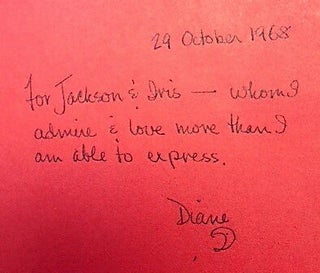 29 October 1968
For Jackson & Iris — whom I
admire & love more than I
am able to express.
Diane
D